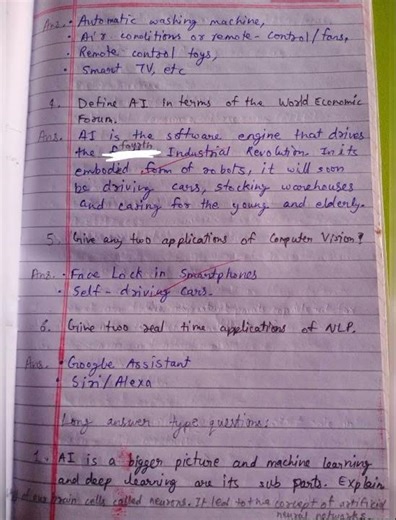 Ans. • Automatic washing machine,
• Air conditions or remote-control/fans,
• Remote control toys,
• Smart TV, etc
4. Define AI in terms of the World Economic
Forum.
Ans. AI is the software engine that drives
the fourth Industrial Revolution. In its
embodied form of robots, it will soon
be driving cars, stocking warehouses
and caring for the young and elderly.
5. Give any two applications of Computer Vision?
Ans. • Face Lock in Smartphones
• Self-driving Cars.
6. Give two real time applications of NLP.
Ans. • Google Assistant
• Siri/Alexa
Long answer type questions:
1. AI is a bigger picture and machine learning
and deep learning are its sub parts. Explain
of our brain cells called neurons. It led to the concept of artificial
neural networks.